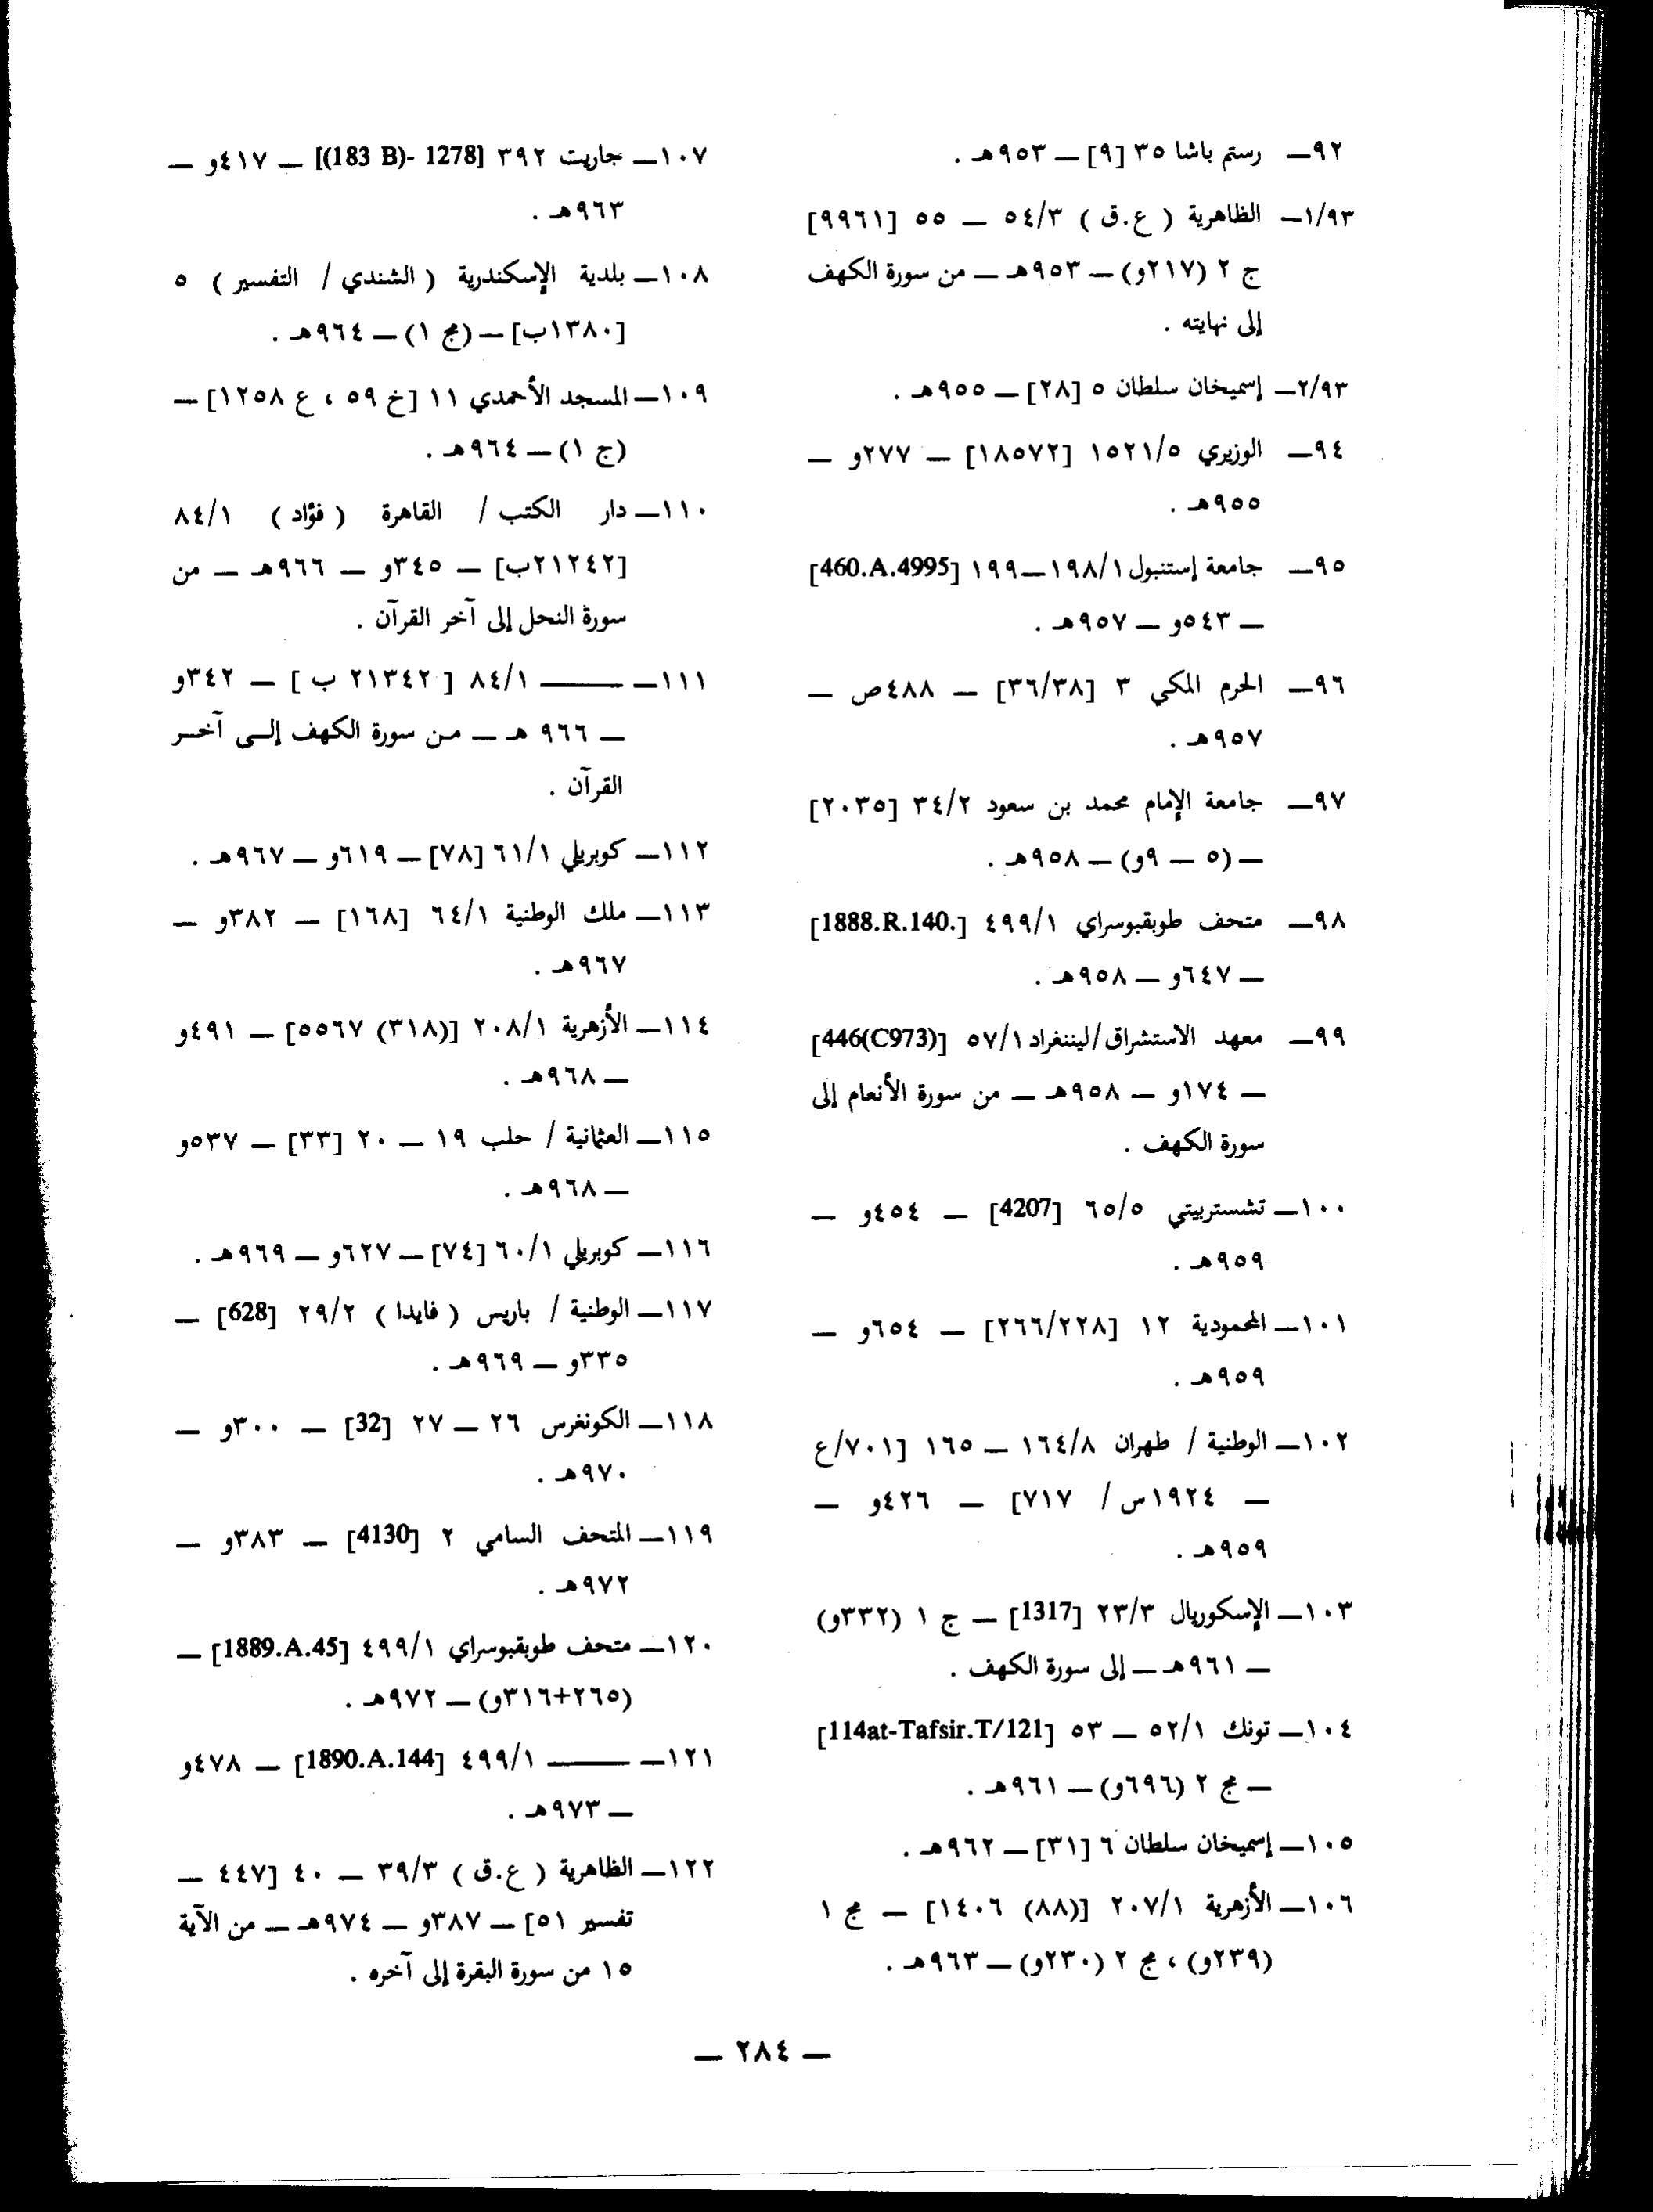 ٩٢— رستم باشا ٣٥ [٩] — ٩٥٣هـ .
١/٩٣— الظاهرية ( ع.ق ) ٥٤/٣ — ٥٥ [٩٩٦١]
ج ٢ (٢١٧و) — ٩٥٣هـ — من سورة الكهف
إلى نهايته .
٢/٩٣— إسميخان سلطان ٥ [٢٨] — ٩٥٥هـ .
٩٤— الوزيري ١٥٢١/٥ [١٨٥٧٢] — ٢٧٧و —
٩٥٥هـ .
٩٥— جامعة إستنبول ١٩٨/١—١٩٩ [460.A.4995]
— ٥٤٣و — ٩٥٧هـ .
٩٦— الحرم المكي ٣ [٣٦/٣٨] — ٤٨٨ص —
٩٥٧هـ .
٩٧— جامعة الإمام محمد بن سعود ٣٤/٢ [٢٠٣٥]
— (٥ — ٩و) — ٩٥٨هـ .
٩٨— متحف طوبقبوسراي ٤٩٩/١ [1888.R.140.]
— ٦٤٧و — ٩٥٨هـ .
٩٩— معهد الاستشراق/لينتغراد ٥٧/١ [446(C973)]
— ١٧٤و — ٩٥٨هـ — من سورة الأنعام إلى
سورة الكهف .
١٠٠— تشستربيتي ٦٥/٥ [4207] — ٤٥٤و —
٩٥٩هـ .
١٠١— المحمودية ١٢ [٢٦٦/٢٢٨] — ٦٥٤و —
٩٥٩هـ .
١٠٢— الوطنية / طهران ١٦٤/٨ — ١٦٥ [٧٠١/ع
— ١٩٢٤س / ٧١٧] — ٤٢٦و —
٩٥٩هـ .
١٠٣— الإسكوريال ٢٣/٣ [1317] — ج ١ (٣٣٢و)
— ٩٦١هـ — إلى سورة الكهف .
١٠٤— تونك ٥٢/١ — ٥٣ [114at-Tafsir.T/121]
— مج ٢ (٦٩٦و) — ٩٦١هـ .
١٠٥— إسميخان سلطان ٦ [٣١] — ٩٦٢هـ .
١٠٦— الأزهرية ٢٠٧/١ [(٨٨) ١٤٠٦] — مج ١
(٢٣٩و) ، مج ٢ (٢٣٠و) — ٩٦٣هـ .
١٠٧— جاريت ٣٩٢ [1278 -(183 B)] — ٤١٧و —
٩٦٣هـ .
١٠٨— بلدية الإسكندرية ( الشندي / التفسير ) ٥
[١٣٨٠ب] — (مج ١) — ٩٦٤هـ .
١٠٩— المسجد الأحمدي ١١ [خ ٥٩ ، ع ١٢٥٨] —
(ج ١) — ٩٦٤هـ .
١١٠— دار الكتب / القاهرة ( فؤاد ) ٨٤/١
[٢١٢٤٢ب] — ٣٤٥و — ٩٦٦هـ — من
سورة النحل إلى آخر القرآن .
١١١— ——— ٨٤/١ [ ٢١٣٤٢ ب ] — ٣٤٢و
— ٩٦٦ هـ — من سورة الكهف إلى آخر
القرآن .
١١٢— كوبريلي ٦١/١ [٧٨] — ٦١٩و — ٩٦٧هـ .
١١٣— ملك الوطنية ٦٤/١ [١٦٨] — ٣٨٢و —
٩٦٧هـ .
١١٤— الأزهرية ٢٠٨/١ [(٣١٨) ٥٥٦٧] — ٤٩١و
— ٩٦٨هـ .
١١٥— العثمانية / حلب ١٩ — ٢٠ [٣٣] — ٥٣٧و
— ٩٦٨هـ .
١١٦— كوبريلي ٦٠/١ [٧٤] — ٦٢٧و — ٩٦٩هـ .
١١٧— الوطنية / باريس ( فايدا ) ٢٩/٢ [628] —
٣٣٥و — ٩٦٩هـ .
١١٨— الكونغرس ٢٦ — ٢٧ [32] — ٣٠٠و —
٩٧٠هـ .
١١٩— المتحف السامي ٢ [4130] — ٣٨٣و —
٩٧٢هـ .
١٢٠— متحف طوبقبوسراي ٤٩٩/١ [1889.A.45] —
(٢٦٥+٣١٦و) — ٩٧٢هـ .
١٢١— ——— ٤٩٩/١ [1890.A.144] — ٤٧٨و
— ٩٧٣هـ .
١٢٢— الظاهرية ( ع.ق ) ٣٩/٣ — ٤٠ [٤٤٧ —
تفسير ٥١] — ٣٨٧و — ٩٧٤هـ — من الآية
١٥ من سورة البقرة إلى آخره .
— ٢٨٤ —